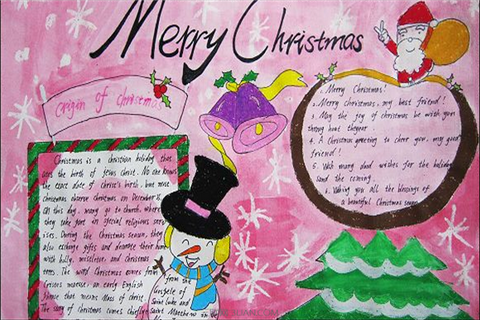 Merry Christmas
Origin of Christmas
Christmas is a christian holiday that
the birth of Jesus christ. No one knows
the exact date of christ's birth, but most
christmas observe christmas on December
On this day, many go to church, where
they take part in special religious
During the Christmas season, they
also exchange gifts and decorate their
with holly, mistletoe, and christmas
trees. The word Christmas comes from
an early English
phrase that means Mass of christ.
The story of Christmas comes chiefly
from the
Saint Luke and
Saint Matthew in the
1. Merry Christmas!
2. Merry christmas, my best friend!
3. May the joy of christmas be with you
4. A Christmas greeting to cheer you, my good
friend!
5. Wish many and wishes for the holiday
and the coming.
6. Wishing you all the blessings of
a beautiful Christmas season.